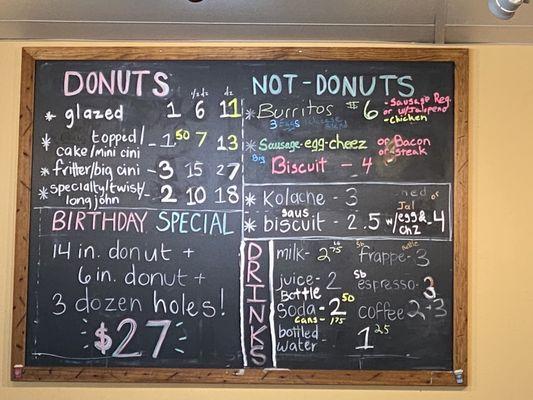 DONUTS
1/2 dz dz
* glazed 1 6 11
* topped/ cake/mini cini - 1 50 7 13
* fritter/big cini - 3 15 27
* specialty/twist/ long john - 2 10 18
BIRTHDAY SPECIAL
14 in. donut +
6 in. donut +
3 dozen holes!
$27
NOT-DONUTS
* Burritos $6
3 Eggs Cheese
- Sausage Reg.
or w/Jalapeno
- chicken
* Sausage-egg-cheez or Bacon
or steak
Big Biscuit - 4
* Kolache - 3 or
Jal
* saus biscuit - 2.5 w/egg & chz - 4
DRINKS
milk - 2
juice - 2
Bottle
Soda - 2 50
cans - 1 75
bottled water - 1 25
Sb frappe - 3
Bottle
Sb espresso - 3
coffee 2 + 3